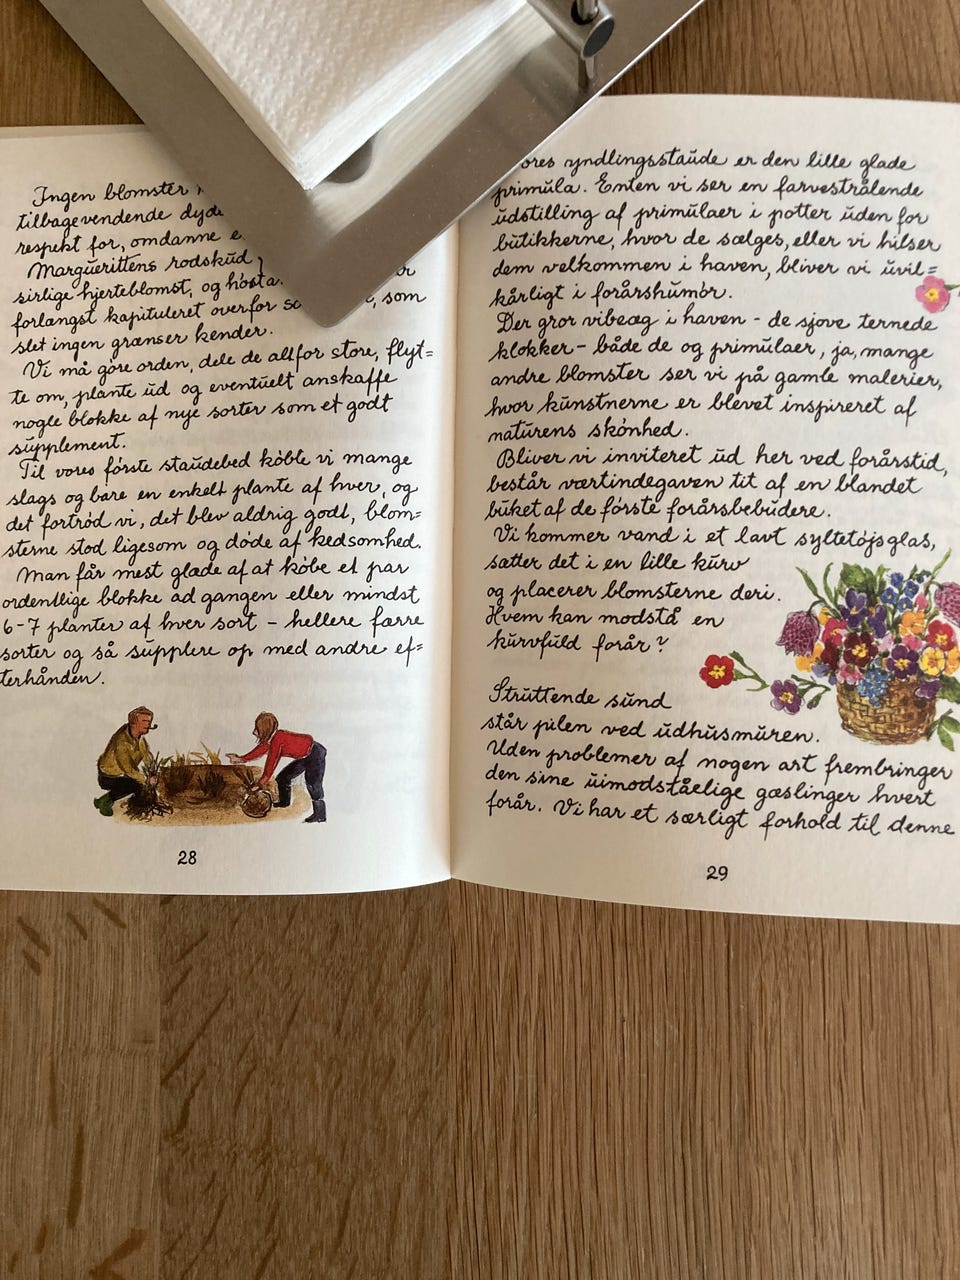 Ingen blomster
tilbagevendende
respekt for, omdanne
Marguerittens rodskud
sirlige hjerteblomst, og
forlængst kapituleret overfor som
slet ingen grænser kender.
Vi må göre orden, dele de altfor store, flyt=
te om, plante ud og eventuelt anskaffe
nogle blokke af nye sorter som et godt
supplement.
Til vores förste staudebed köbte vi mange
slags og bare en enkelt plante af hver, og
det fortröd vi, det blev aldrig godt, blom=
sterne stod ligesom og döde af kedsomhed.
Man får mest glæde af at köbe et par
ordentlige blokke ad gangen eller mindst
6-7 planter af hver sort - hellere færre
sorter og så supplere op med andre ef=
terhånden.
28
yndlingsstaude er den lille glade
primula. Enten vi ser en farvestrålende
udstilling af primulaer i potter uden for
butikkerne, hvor de sælges, eller vi hilser
dem velkommen i haven, bliver vi uvil=
kårligt i forårshumör.
Der gror vibeæg i haven - de sjove ternede
klokker - både de og primulaer, ja, mange
andre blomster ser vi på gamle malerier,
hvor kunstnerne er blevet inspireret af
naturens skönhed.
Bliver vi inviteret ud her ved forårstid,
består værtindegaven tit af en blandet
buket af de förste forårsbebudere.
Vi kommer vand i et lavt syltetöjsglas,
sætter det i en lille kurv
og placerer blomsterne deri.
Hvem kan modstå en
kurvfuld forår?
Struttende sund
står pilen ved udhusmuren.
Uden problemer af nogen art frembringer
den sine uimodståelige gæslinger hvert
forår. Vi har et særligt forhold til denne
29